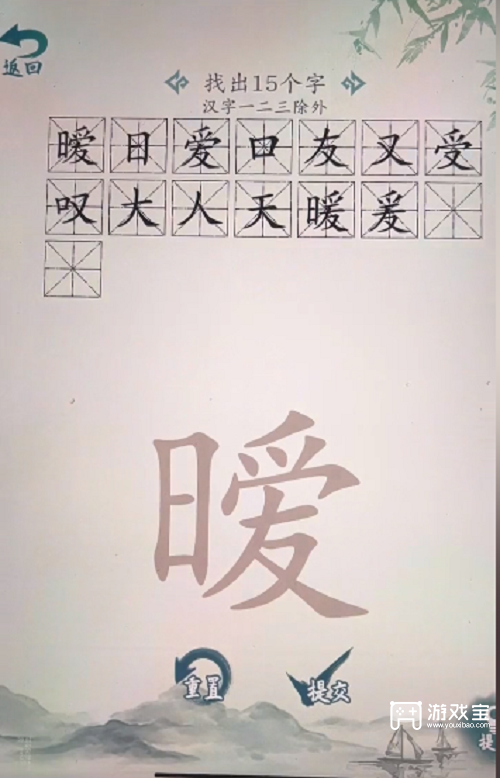 返回
找出15个字
汉字一二三除外
暧日爱口友又受
叹大人天暖爰
暧
重置
提交
游戏宝
www.youxibao.com
提